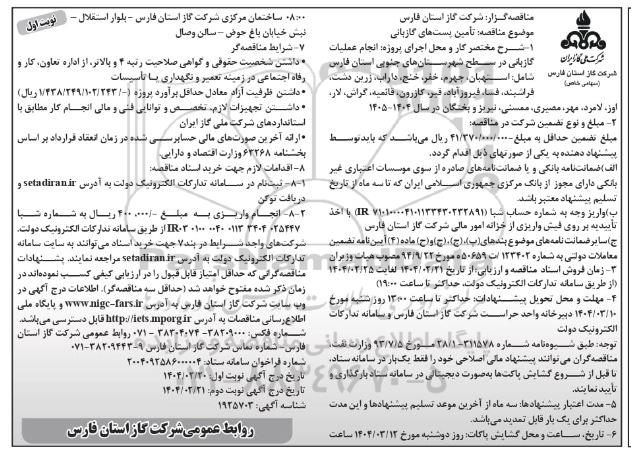 نوبت اول
شرکت ملی گاز ایران
شرکت گاز استان فارس
(سهامی خاص)
مناقصه‌گزار: شرکت گاز استان فارس
موضوع مناقصه: تأمین پست‌های گازبانی
۱-شرح مختصر کار و محل اجرای پروژه: انجام عملیات
گازبانی در سطح شهرستان‌های جنوبی استان فارس
شامل: استهبان، جهرم، خفر، خنج، داراب، زرین دشت،
فراشبند، فسا، فیروزآباد، قیر، کازرون، قائمیه، گراش، لار،
اوز، لامرد، مهر، مصیری، ممسنی، نیریز و بختگان در سال ۱۴۰۴-۱۴۰۵
۲- مبلغ و نوع تضمین شرکت در مناقصه:
مبلغ تضمین حداقل به مبلغ-/۴۱/۳۷۰/۰۰۰/۰۰۰ ریال می‌باشد که باید توسط
پیشنهاد دهنده به یکی از صورتهای ذیل اقدام گردد.
الف)ضمانت‌نامه بانکی و یا ضمانت‌نامه‌های صادره از سوی موسسات اعتباری غیر
بانکی دارای مجوز از بانک مرکزی جمهوری اسلامی ایران که تا سه ماه از تاریخ
تسلیم پیشنهاد معتبر باشد.
ب)واریز وجه به شماره حساب شبا (IR ۷۱۰۱۰۰۰۰۴۱۰۱۱۳۳۴۳۰۲۳۲۸۹۱) با اخذ
تأییدیه بر روی فیش واریزی از خزانه امور مالی شرکت گاز استان فارس
ج)سایر ضمانت‌نامه های موضوع بندهای(پ)،(ج)،(چ)و(ح) ماده (۴) آیین‌نامه تضمین
معاملات دولتی به شماره ۱۲۳۴۰۲/ت ۵۰۶۵۹ه مورخ ۹۴/۹/۲۲ مصوب هیات وزیران
۳- زمان فروش اسناد مناقصه و ارزیابی: از تاریخ ۱۴۰۴/۰۲/۲۱ لغایت ۱۴۰۴/۰۲/۲۵
(از طریق سامانه تدارکات الکترونیک دولت، حداکثر تا ساعت ۱۹:۰۰)
۴- مهلت و محل تحویل پیشنهادات: حداکثر تا ساعت ۱۳:۰۰ روز شنبه مورخ
۱۴۰۴/۰۳/۱۰ دبیرخانه واحد حراست شرکت گاز استان فارس و سامانه تدارکات
الکترونیک دولت
توجه: طبق شیوه‌نامه شماره ۲۸/۱-۳۱۱۵۷۸ مورخ ۹۳/۷/۵ وزارت نفت:
مناقصه‌گران می‌توانند پیشنهاد مالی اصلاحی خود را فقط یک‌بار در سامانه ستاد،
تا قبل از شروع گشایش پاکت‌ها به‌صورت دیجیتالی در سامانه ستاد بارگذاری و
تأیید نمایند.
۵- مدت اعتبار پیشنهادها: سه ماه از آخرین موعد تسلیم پیشنهادها و این مدت
حداکثر برای یک بار قابل تمدید می‌باشد.
۶- تاریخ، ساعت و محل گشایش پاکات: روز دوشنبه مورخ ۱۴۰۴/۰۳/۱۲ ساعت
۰۸:۰۰ ساختمان مرکزی شرکت گاز استان فارس - بلوار استقلال -
نبش خیابان باغ حوض - سالن وصال
۷- شرایط مناقصه‌گر
•داشتن شخصیت حقوقی و گواهی صلاحیت رتبه ۴ و بالاتر، از اداره تعاون، کار و
رفاه اجتماعی در زمینه تعمیر و نگهداری یا تأسیسات
•داشتن ظرفیت آزاد معادل حداقل برآورد پروژه (-/۱/۴۳۸/۲۴۹/۱۰۲/۲۴۳ ریال)
•داشتن تجهیزات لازم، تخصص و توانایی فنی و مالی انجام کار مطابق با
استانداردهای شرکت ملی گاز ایران
•ارائه آخرین صورت‌های مالی حسابرسی شده در زمان انعقاد قرارداد بر اساس
بخشنامه ۶۳۲۶۸ وزارت اقتصاد و دارایی.
۸-اقدامات لازم جهت خرید اسناد مناقصه:
۸-۱- ثبت‌نام در سامانه تدارکات الکترونیک دولت به آدرس setadiran.ir و
دریافت توکن
۸-۲- انجام واریزی به مبلغ -/۴۰۰,۰۰۰ ریال به شماره شبا
IR۰۳ ۰۱۰۰ ۰۰۴۰ ۰۱۱۳ ۳۴۰۴ ۰۲۵۴۴۷ از طریق سامانه تدارکات الکترونیک دولت.
شرکت‌های واجد شرایط در بند۷ جهت خرید اسناد می‌توانند به سایت سامانه
تدارکات الکترونیک دولت به آدرس setadiran.ir مراجعه نمایند. پیشنهادات
مناقصه‌گرانی که حداقل امتیاز قابل قبول را در ارزیابی کیفی کسب نموده‌اند در
زمان ذکر شده مفتوح خواهد شد (حداقل سه مناقصه‌گر). اطلاعات درج آگهی در
وب سایت شرکت گاز استان فارس به آدرس www.nigc-fars.ir و پایگاه ملی
اطلاع‌رسانی مناقصات به آدرس http://iets.mporg.ir قابل دسترسی می‌باشد.
شماره فکس: ۳۸۲۰۹۰۰۰- ۳۸۳۰۴۰۷۴ - ۰۷۱ روابط عمومی شرکت گاز استان
فارس-شماره تماس شرکت گاز استان فارس ۹-۰۷۱-۳۸۲۰۹۴۴۳
شماره فراخوان سامانه ستاد: ۲۰۰۴۰۹۲۵۸۶۰۰۰۰۰۴
تاریخ درج آگهی نوبت اول: ۱۴۰۴/۰۲/۲۰
تاریخ درج آگهی نوبت دوم: ۱۴۰۴/۰۲/۲۱
شناسه آگهی: ۱۹۲۵۷۰۳
روابط عمومی شرکت گاز استان فارس